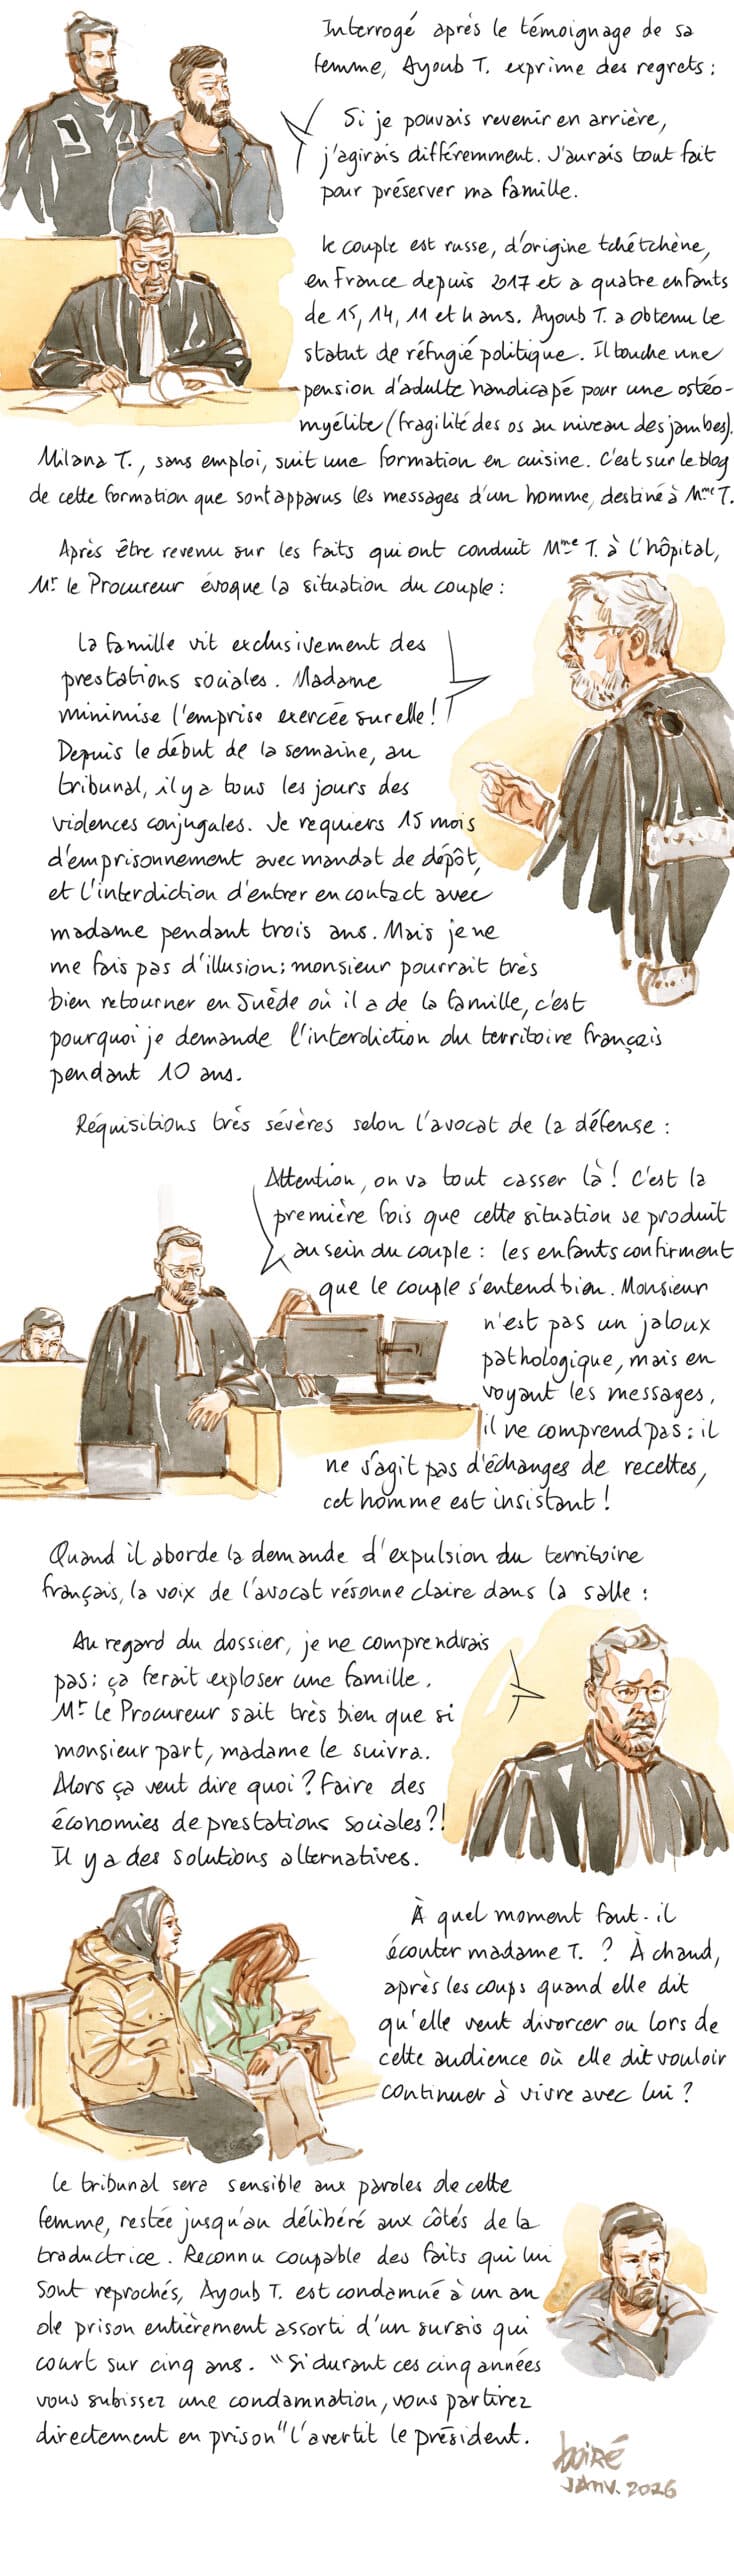 Interrogé après le témoignage de sa
femme, Ayoub T. exprime des regrets :
Si je pouvais revenir en arrière,
j'agirais différemment. J'aurais tout fait
pour préserver ma famille.
Le couple est russe, d'origine tchétchène,
en France depuis 2017 et a quatre enfants
de 15, 14, 11 et 4 ans. Ayoub T. a obtenu le
statut de réfugié politique. Il touche une
pension d'adulte handicapé pour une ostéo-
myélite (fragilité des os au niveau des jambes).
Milana T., sans emploi, suit une formation en cuisine. C'est sur le blog
de cette formation que sont apparus les messages d'un homme, destiné à Mme T.
Après être revenu sur les faits qui ont conduit Mme T. à l'hôpital,
Mr le Procureur évoque la situation du couple :
La famille vit exclusivement des
prestations sociales. Madame
minimise l'emprise exercée sur elle !
Depuis le début de la semaine, au
tribunal, il y a tous les jours des
violences conjugales. Je requiers 15 mois
d'emprisonnement avec mandat de dépôt,
et l'interdiction d'entrer en contact avec
madame pendant trois ans. Mais je ne
me fais pas d'illusion ; monsieur pourrait très
bien retourner en Suède où il a de la famille, c'est
pourquoi je demande l'interdiction du territoire français
pendant 10 ans.
Réquisitions très sévères selon l'avocat de la défense :
Attention, on va tout casser là ! C'est la
première fois que cette situation se produit
au sein du couple : les enfants confirment
que le couple s'entend bien. Monsieur
n'est pas un jaloux
pathologique, mais en
voyant les messages,
il ne comprend pas : il
ne s'agit pas d'échanges de recettes,
cet homme est insistant !
Quand il aborde la demande d'expulsion du territoire
français, la voix de l'avocat résonne claire dans la salle :
Au regard du dossier, je ne comprendrais
pas : ça ferait exploser une famille.
Mr le Procureur sait très bien que si
monsieur part, madame le suivra.
Alors ça veut dire quoi ? Faire des
économies de prestations sociales ?!
Il y a des solutions alternatives.
À quel moment faut-il
écouter madame T. ? À chaud,
après les coups quand elle dit
qu'elle veut divorcer ou lors de
cette audience où elle dit vouloir
continuer à vivre avec lui ?
Le tribunal sera sensible aux paroles de cette
femme, restée jusqu'au délibéré aux côtés de la
traductrice. Reconnu coupable des faits qui lui
sont reprochés, Ayoub T. est condamné à un an
de prison entièrement assorti d'un sursis qui
court sur cinq ans. "Si durant ces cinq années
vous subissez une condamnation, vous partirez
directement en prison" l'avertit le président.
boiré
JANV. 2026